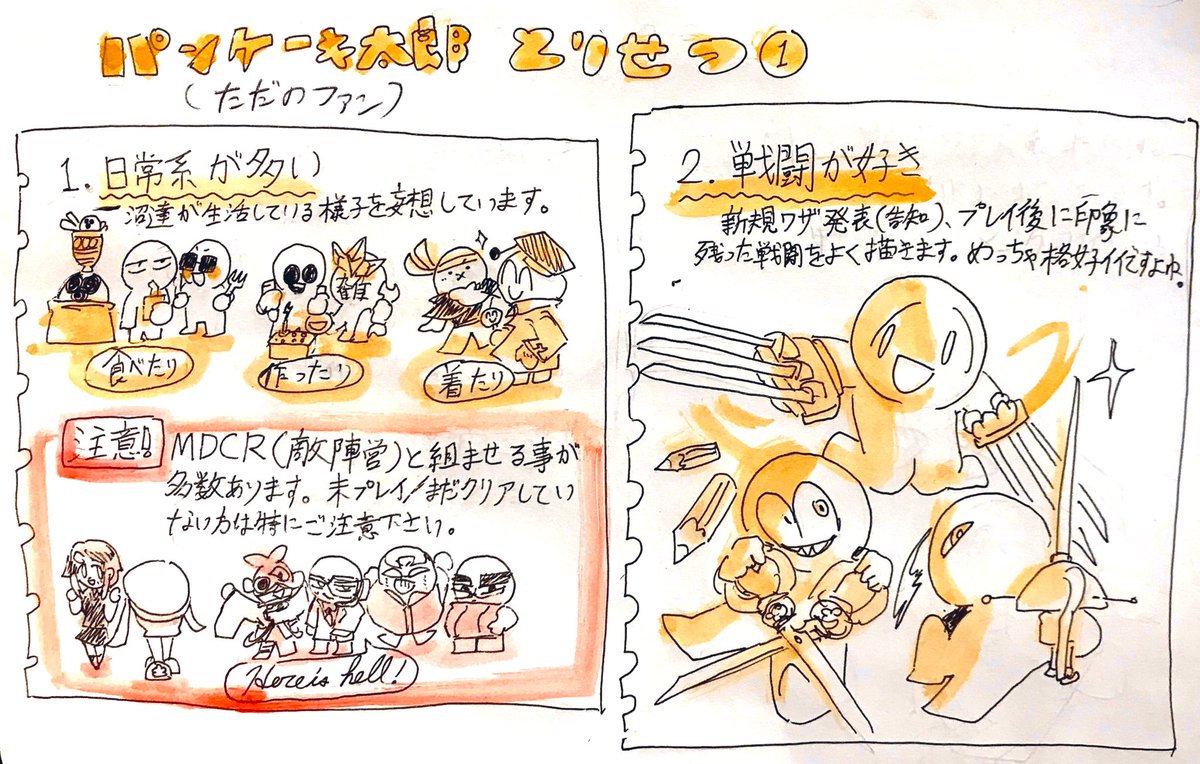 パンケーキ太郎 とりせつ①
(ただのファン)
1. 日常系が多い
沼達が生活している様子を妄想しています。
食べたり
作ったり
着たり
注意!!
MDCR(敵陣営)と組ませる事が
多数あります。未プレイ/まだクリアしてい
ない方は特にご注意下さい。
Here is hell!
2. 戦闘が好き
新規ワザ発表(告知)、プレイ後に印象に
残った戦闘をよく描きます。めっちゃ格好イイですよね.